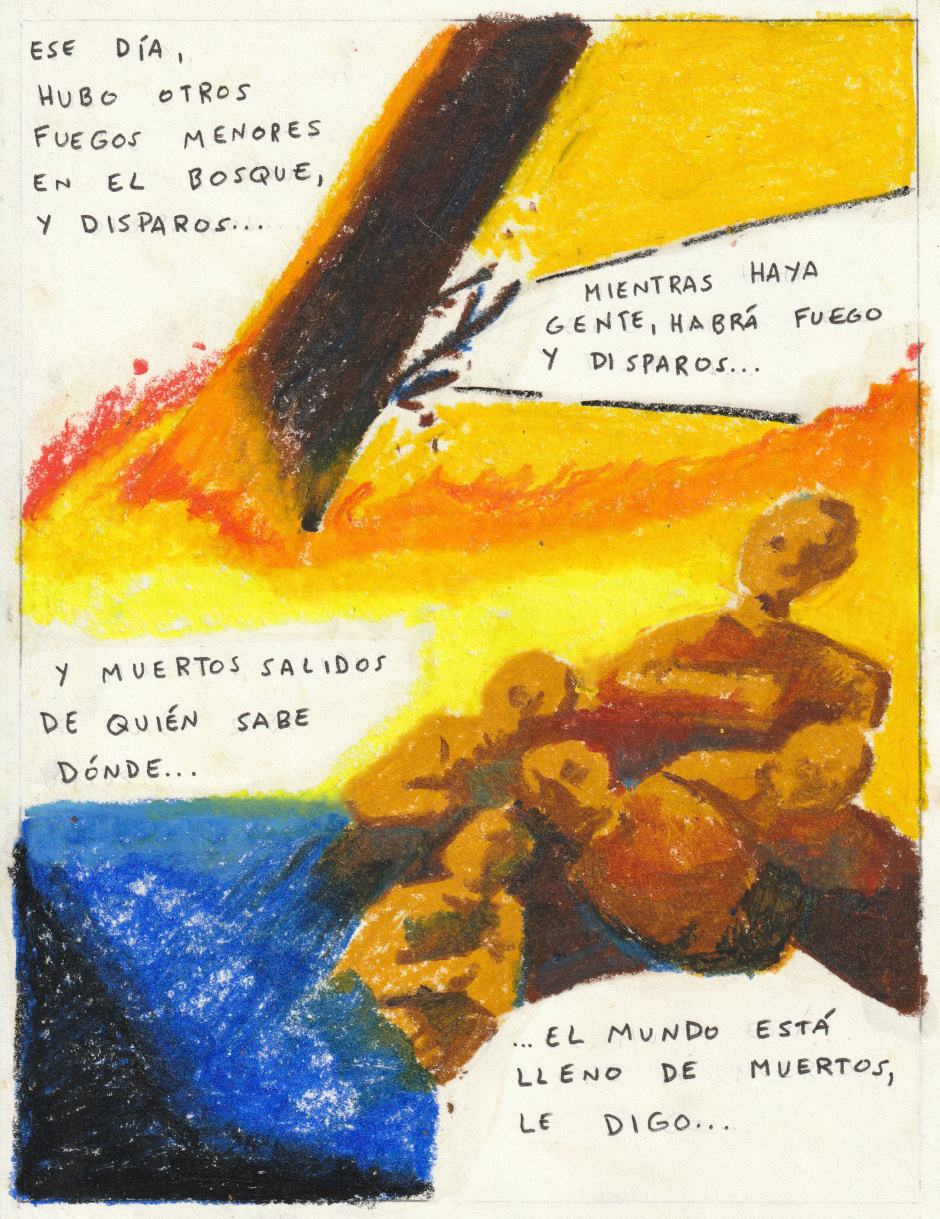 ESE DÍA,
HUBO OTROS
FUEGOS MENORES
EN EL BOSQUE,
Y DISPAROS...
MIENTRAS HAYA
GENTE, HABRÁ FUEGO
Y DISPAROS...
Y MUERTOS SALIDOS
DE QUIÉN SABE
DÓNDE...
...EL MUNDO ESTÁ
LLENO DE MUERTOS,
LE DIGO...